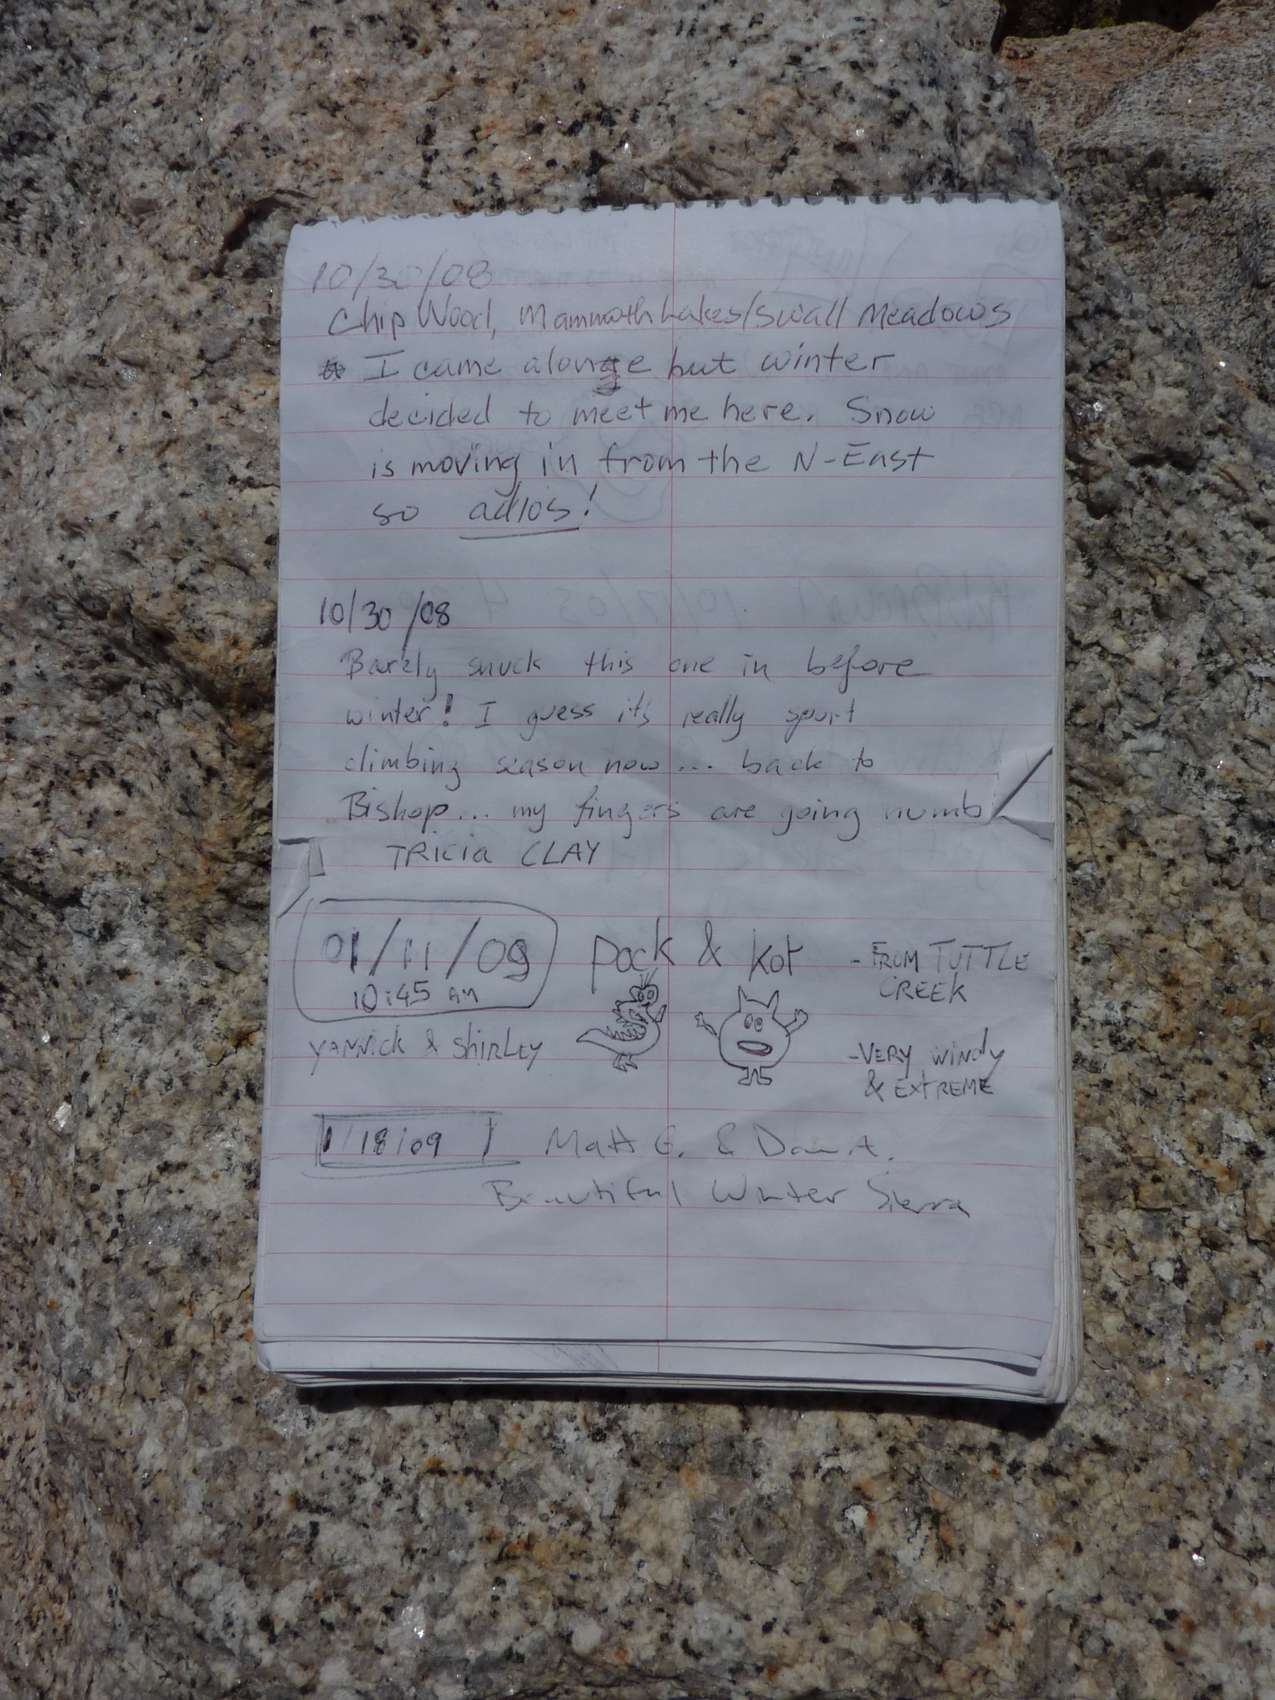 10/30/08
Chip Wood, Mammoth Lakes/Swall Meadows
I came alone but winter
decided to meet me here. Snow
is moving in from the N-East
so adios!
10/30/08
Barely snuck this one in before
winter! I guess it's really sport
climbing season now... back to
Bishop... my fingers are going numb
TRicia CLAY
01/11/09
10:45 AM
pock & kot
- FROM TUTTLE
CREEK
YANNICK & SHIRLEY
-VERY WINDY
& EXTREME
1/18/09
Matt G. & Dan A.
Beautiful Winter Sierra